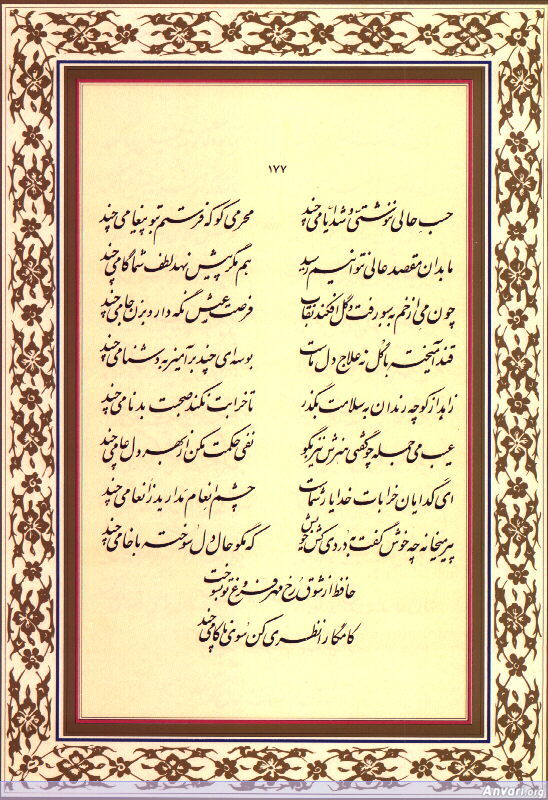 ۱۷۷
حسب حالی ننوشتی و شد ایامی چند محرمی کو که فرستم بتو پیغامی چند
ما بدان مقصد عالی نتوانیم رسید هم مگر پیش نهد لطف شما گامی چند
چون می از خم به سبو رفت و گل افکند نقاب فرصت عیش نگه دار و بزن جامی چند
قند آمیخته با گل نه علاج دل ماست بوسه‌ای چند برآمیز به دشنامی چند
زاهد از کوچه رندان به سلامت بگذر تا خرابت نکند صحبت بدنامی چند
عیب می جمله چو گفتی هنرش نیز بگو نفی حکمت مکن از بهر دل عامی چند
ای گدایان خرابات خدا یار شماست چشم انعام مدارید ز انعامی چند
پیر میخانه چه خوش گفت به دردی کش خویش که مگو حال دل سوخته با خامی چند
حافظ از شوق رخ مهر فروغ تو بسوخت
کامگارا نظری کن سوی ناکامی چند
Anvari.org